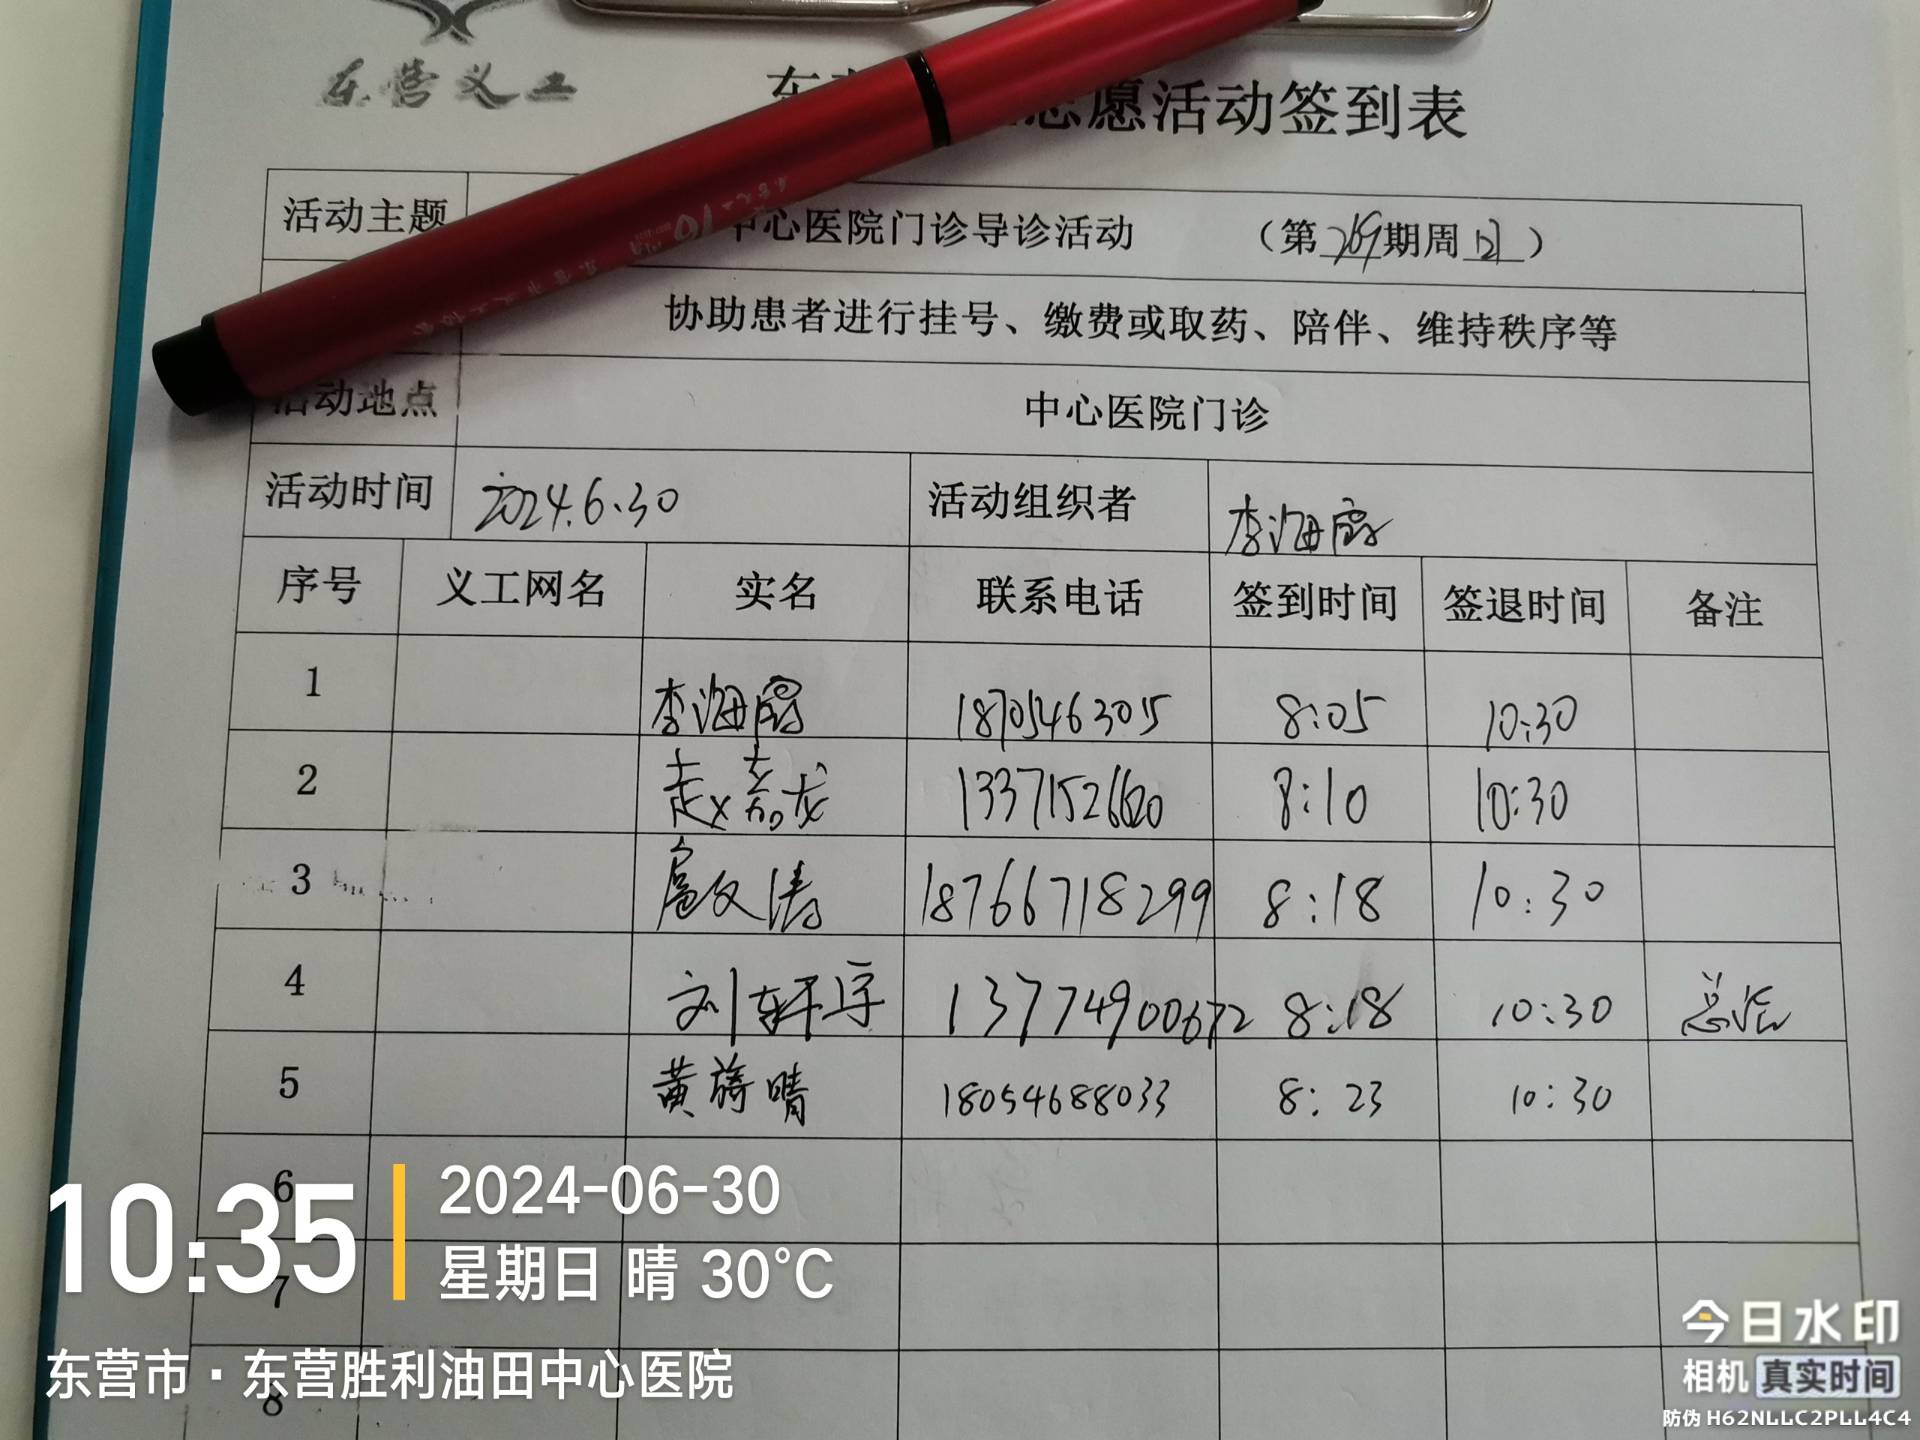 东营义工
志愿活动签到表
活动主题 中心医院门诊导诊活动 （第269期周日）
协助患者进行挂号、缴费或取药、陪伴、维持秩序等
活动地点 中心医院门诊
活动时间 2024.6.30 活动组织者 李海霞
序号 义工网名 实名 联系电话 签到时间 签退时间 备注
1 李海霞 18705463015 8:05 10:30
2 赵嘉龙 13371526620 8:10 10:30
3 扈文涛 18766718299 8:18 10:30
4 刘轩宇 13774900672 8:18 10:30
5 黄旖晴 18054688033 8:23 10:30
6
7
8
10:35
2024-06-30
星期日 晴 30°C
东营市·东营胜利油田中心医院
今日水印
相机 真实时间
防伪 H62NLLC2PLL4C4